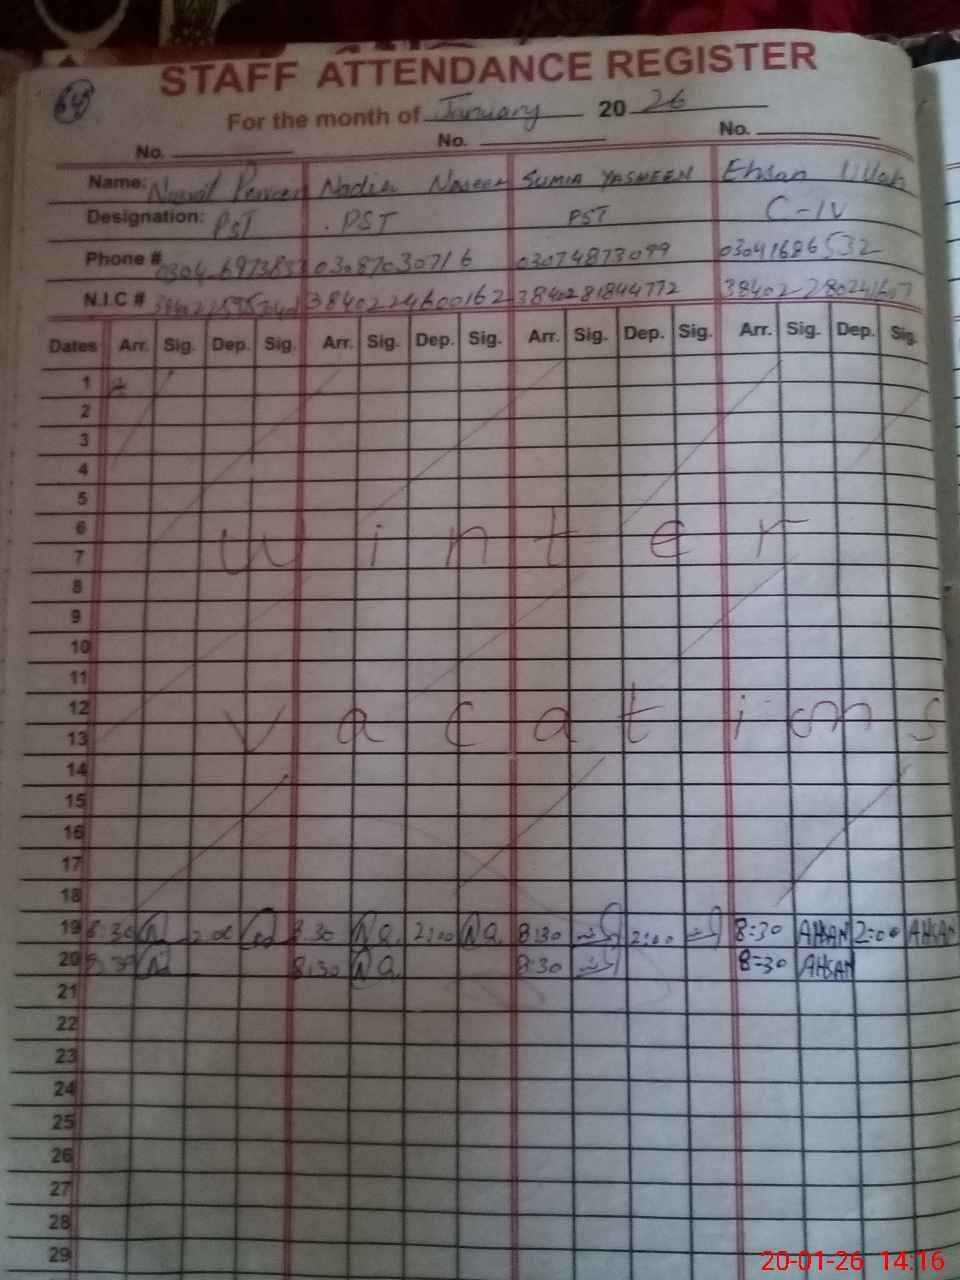 64
STAFF ATTENDANCE REGISTER
For the month of January 20 26
No. No. No.
Name: Nadia Naseem SUMIA YASMEEN Ehsan Ullah
Designation: PST PST PST C-IV
Phone # 03087030716 03074873099 03041686532
N.I.C # 3840224600162 3840281844772
Dates Arr. Sig. Dep. Sig. Arr. Sig. Dep. Sig. Arr. Sig. Dep. Sig. Arr. Sig. Dep. Sig.
1
2
3
4
5
6
winter
7
8
9
10
11
12
vacations
13
14
15
16
17
18
19 8:30 2:00 8:30 2:00 8:30 2:00 8:30 AHSAN 2:00 AHSAN
20 8:30 8:30 8:30 8:30 AHSAN
21
22
23
24
25
26
27
28
29
20-01-26 14:16